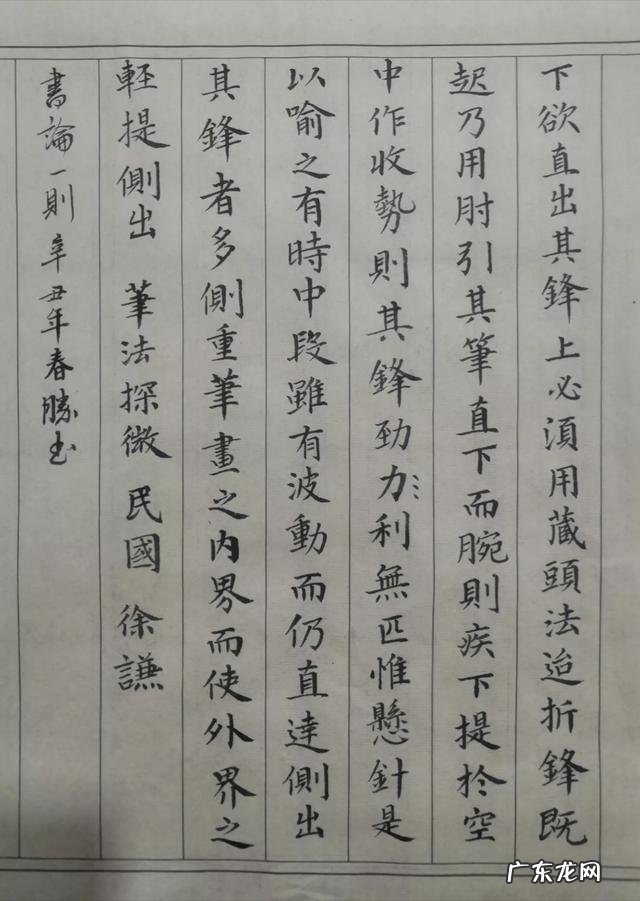 下欲直出其鋒上必須用藏頭法迨折鋒既
起乃用肘引其筆直下而腕則疾下提於空
中作收勢則其鋒勁力利無匹惟懸針是
以喻之有時中段雖有波動而仍直達側出
其鋒者多側重筆畫之内界而使外界之
輕提側出 筆法探微 民國 徐謙
書論一則 辛丑年春勝書
广东龙网